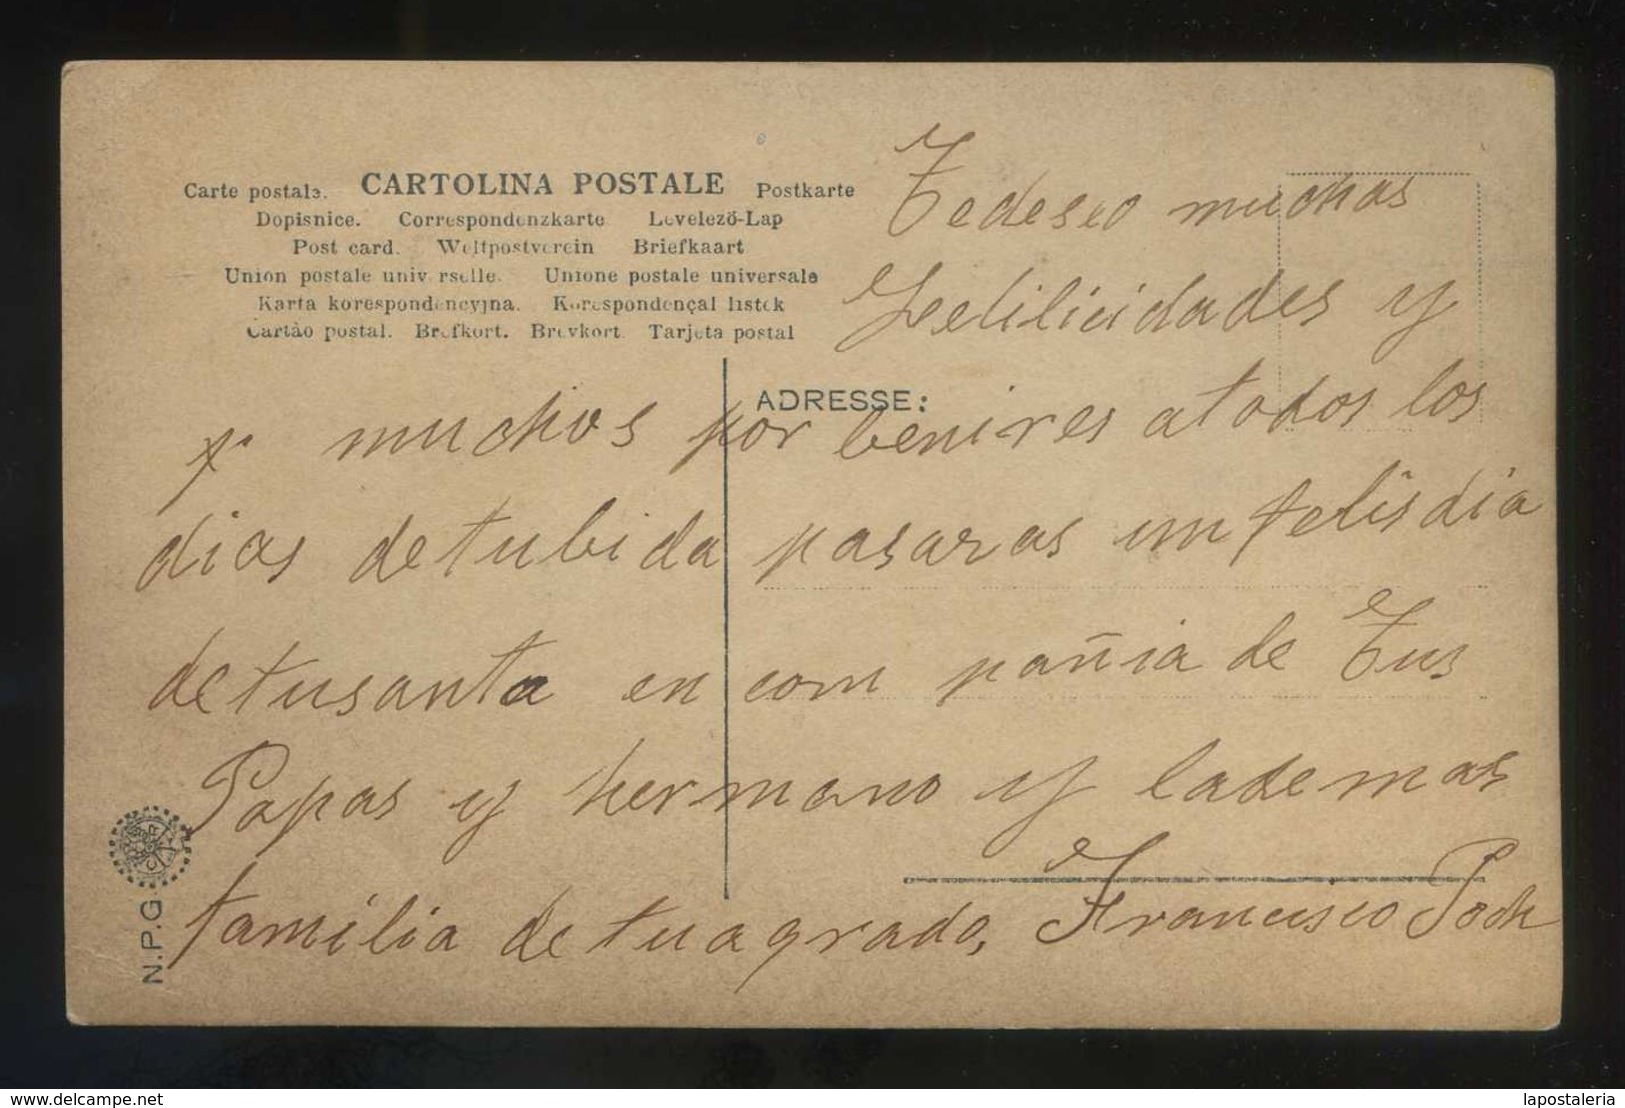 Carte postale. CARTOLINA POSTALE Postkarte
Dopisnice. Correspondenzkarte Levelező-Lap
Post card. Weltpostverein Briefkaart
Union postale universelle. Unione postale universale
Karta korespondencyjna. Korespondençal listek
Cartão postal. Brefkort. Brevkort Tarjeta postal
ADRESSE:
Tedeseo muchas
Felilicidades y
muchos por benires atodos los
dias detubida pasaras un felis dia
detusanta en com pañia de Tus
Papas y hermano y lademas
familia de tuagrado, Francisco Poch
N.P.G.
delcampe.net
lapostaleria